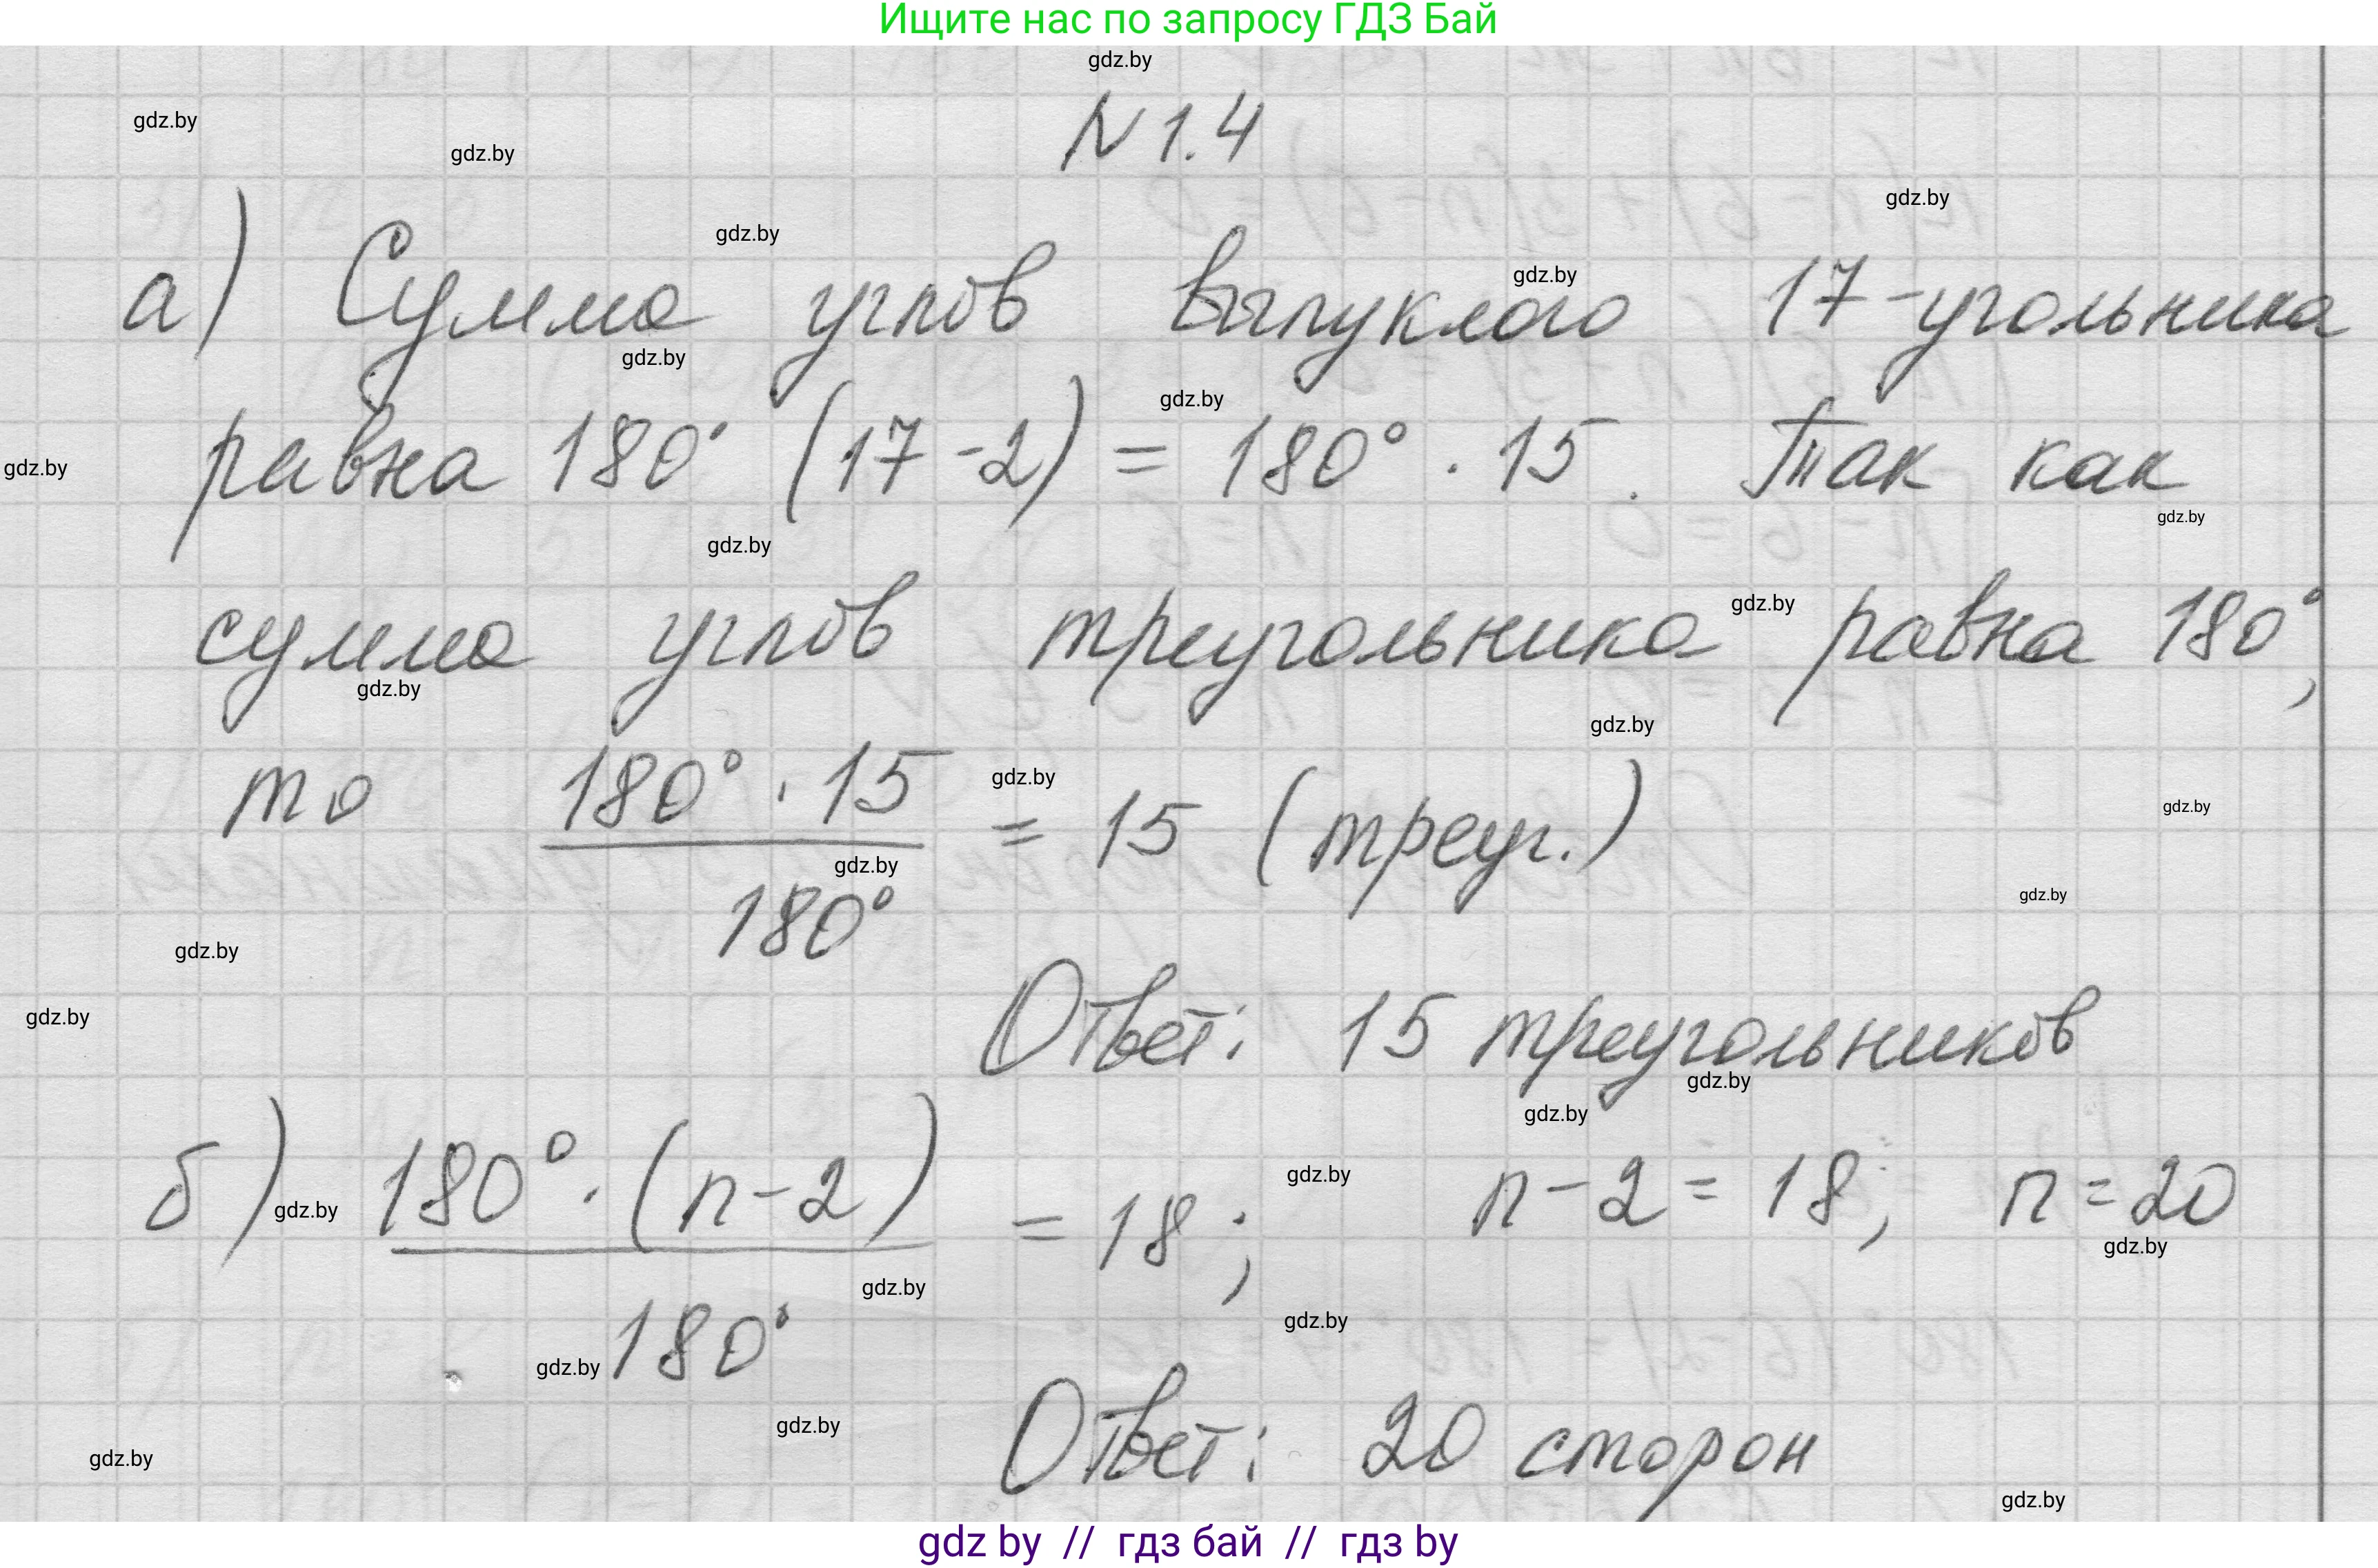 Ищите нас по запросу ГДЗ Бай
gdz.by
N 1.4
gdz.by
gdz.by
gdz.by
gdz.by
gdz.by
а) Сумма углов выпуклого 17-угольника
gdz.by
gdz.by
равна 180° (17-2) = 180° · 15. Так как
gdz.by
gdz.by
gdz.by
сумма углов треугольника равна 180°,
gdz.by
gdz.by
gdz.by
то 180° · 15 / 180° = 15 (треуг.)
gdz.by
gdz.by
gdz.by
gdz.by
gdz.by
gdz.by
Ответ: 15 треугольников
gdz.by
gdz.by
б) 180° · (n-2) / 180° = 18; n-2 = 18; n = 20
gdz.by
gdz.by
gdz.by
gdz.by
gdz.by
gdz.by
gdz.by
Ответ: 20 сторон
gdz.by
gdz.by
gdz by // гдз бай // гдз by